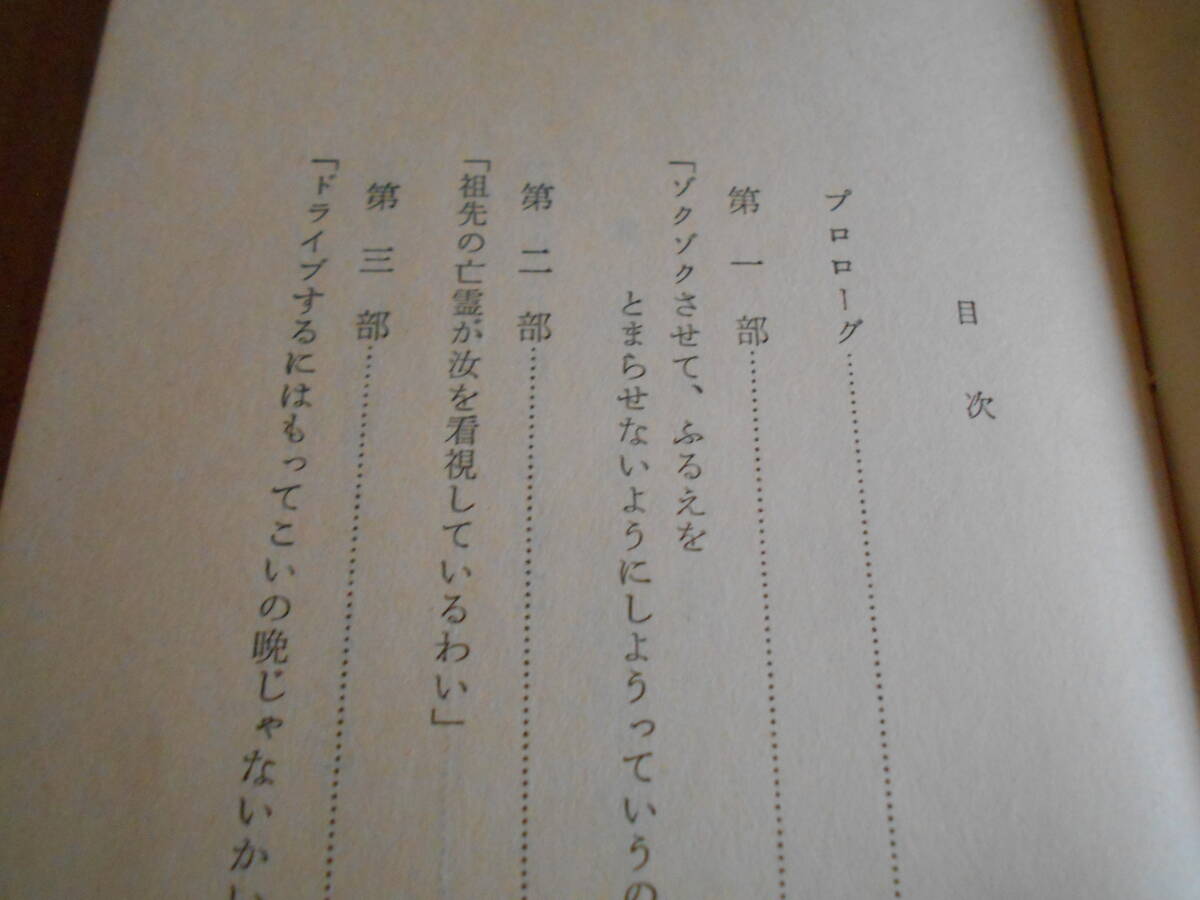 目次
プロローグ……………………
第一部……………………
「ゾクゾクさせて、ふるえを
とまらせないようにしようっていうの
第二部……………………
「祖先の亡霊が汝を看視しているわい」
第三部……………………
「ドライブするにはもってこいの晩じゃないかい